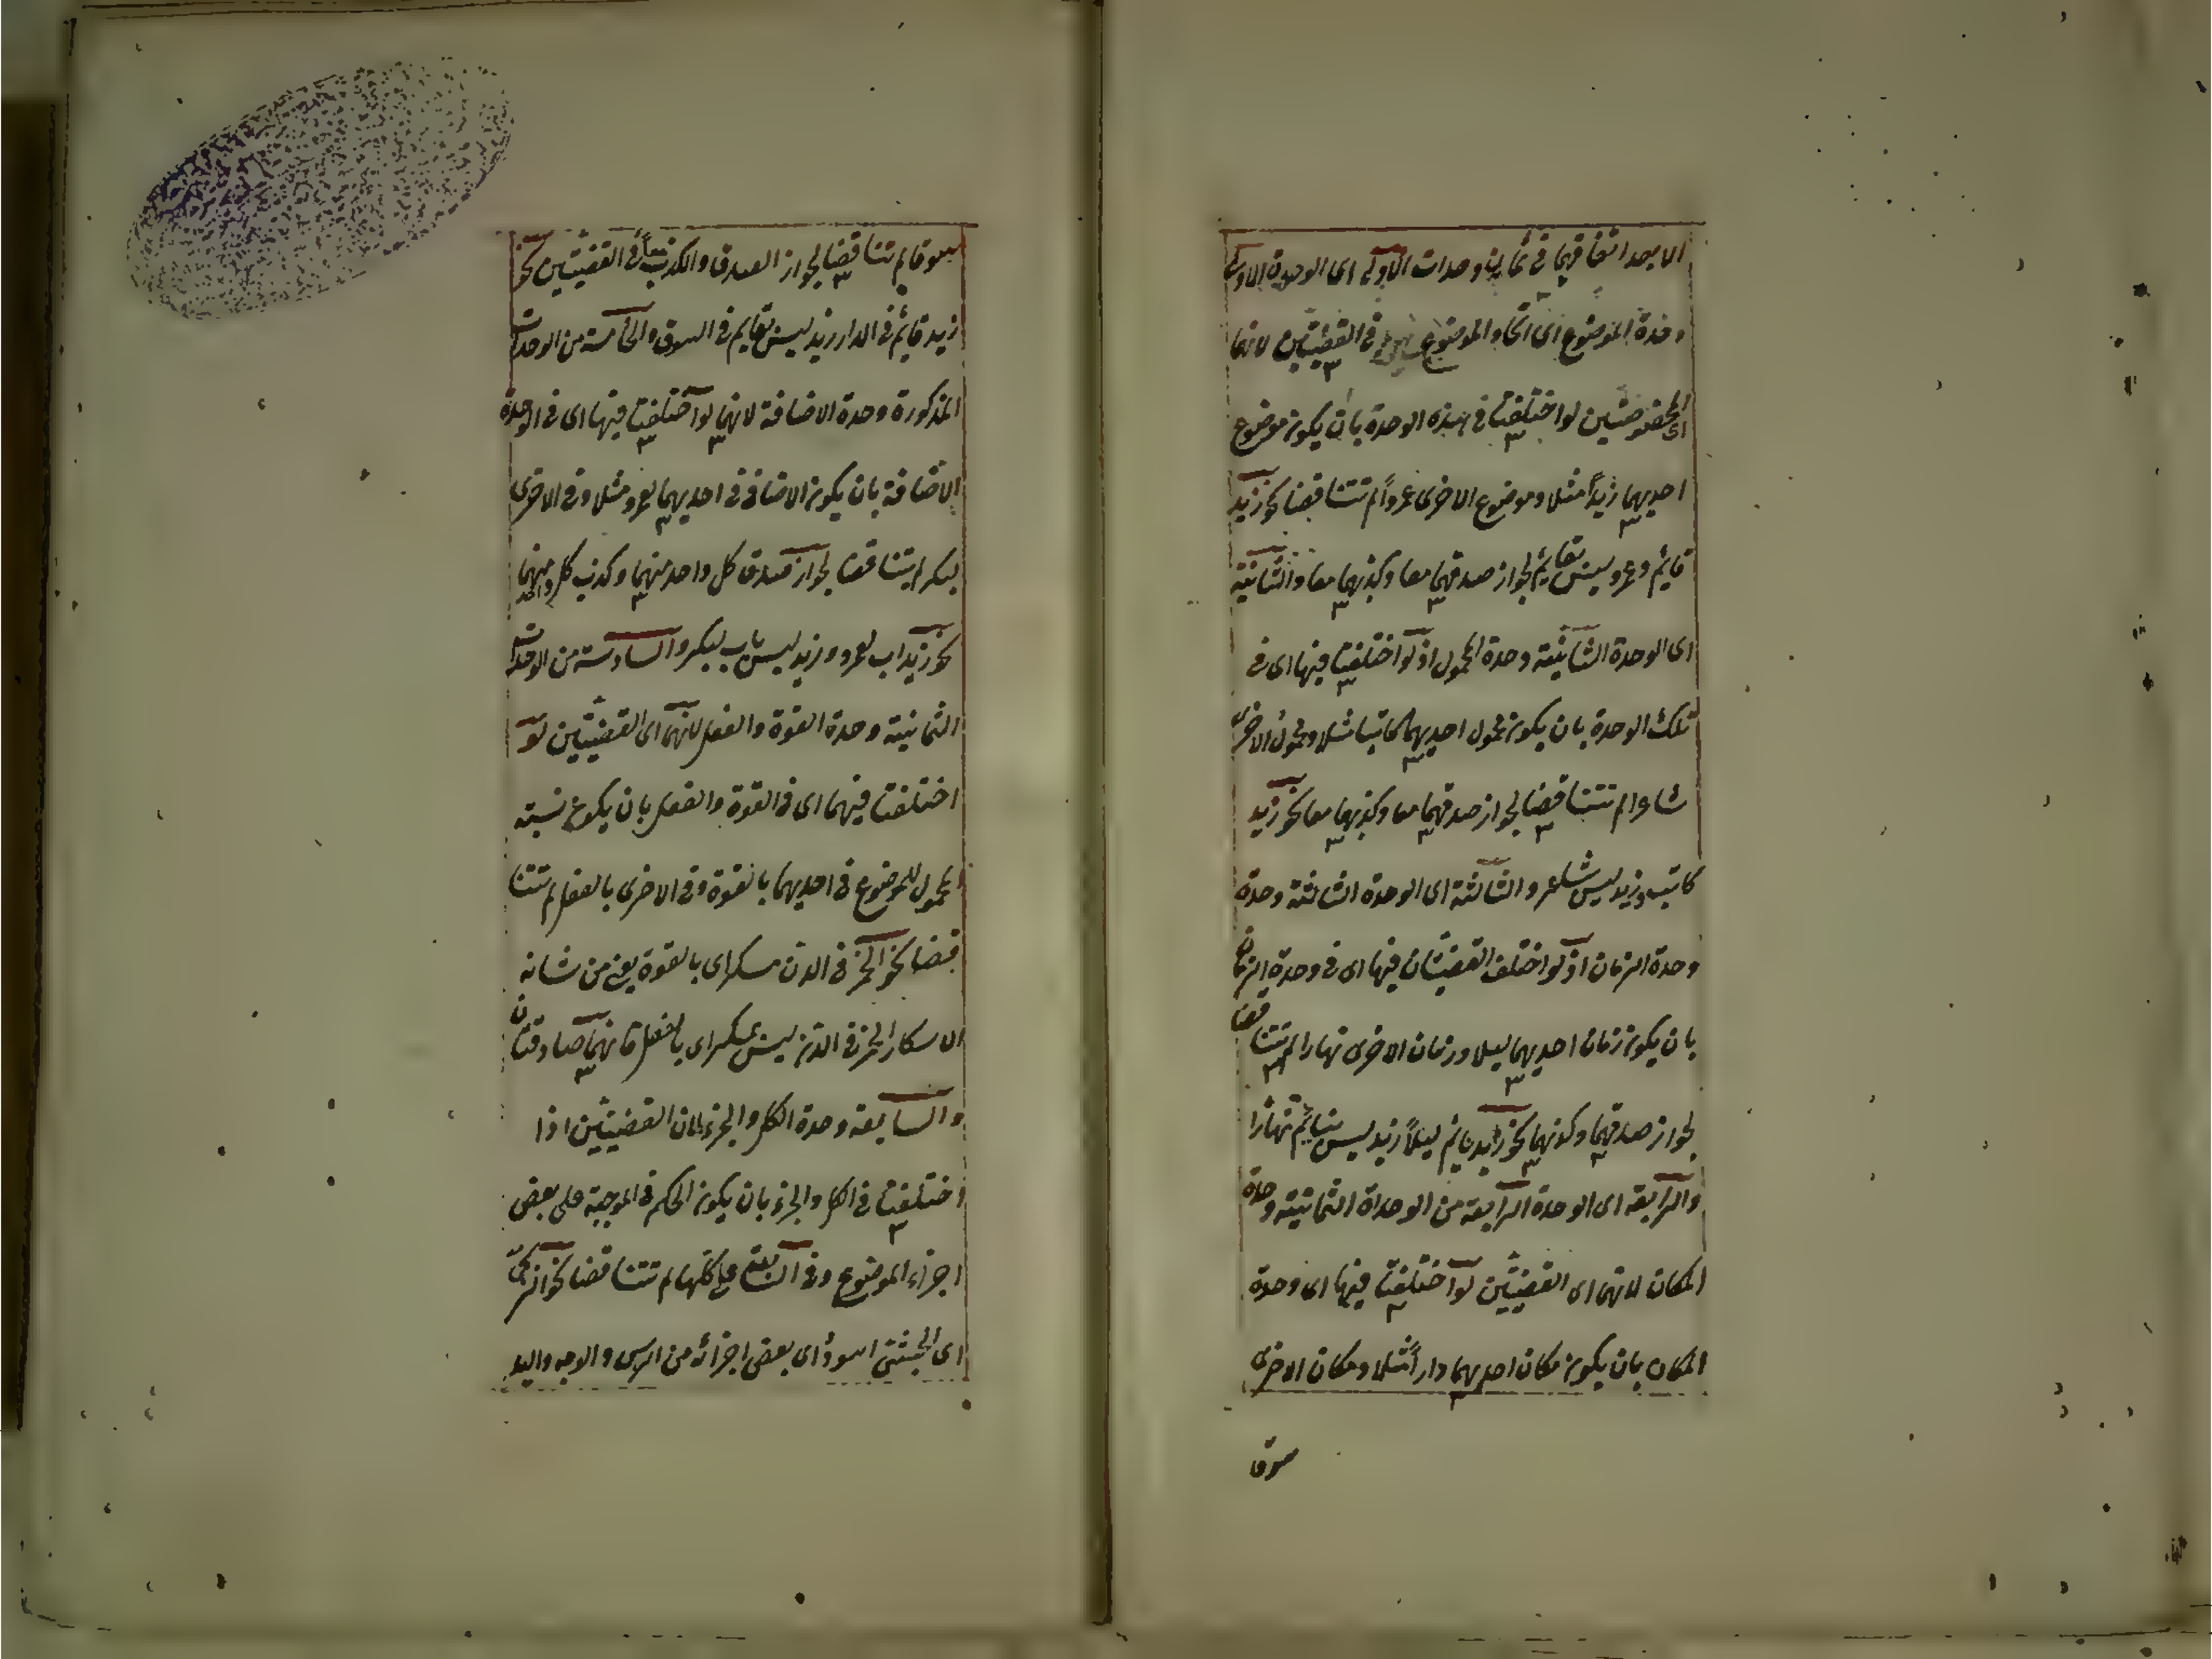 الا بعد اتفاقهما في ثمان وحدات الاولى اى الوحدة الاولى
وحدة الموضوع اى اتحاد الموضوع في القضيتين لانهما
اى المخصوصتين لو اختلفتا في هذه الوحدة بان يكون موضوع
احديهما زيداً مثلا وموضوع الاخرى عمرواً لم تتناقضا نحو زيد
قايم وعمرو ليس بقايم لجواز صدقهما معا وكذبهما معا والثانية
اى الوحدة الثانية وحدة المحمول اذ لو اختلفتا فيها اى في
تلك الوحدة بان يكون محمول احديهما كاتبا مثلا ومحمول الاخرى
شاعرا لم تتناقضا لجواز صدقهما معا وكذبهما معا نحو زيد
كاتب وزيد ليس بشاعر والثالثة اى الوحدة الثالثة وحدة
وحدة الزمان اذ لو اختلف القضيتان فيها اى في وحدة الزمان
بان يكون زمان احديهما ليلا وزمان الاخرى نهارا لم تتناقضا
لجواز صدقهما وكذبهما نحو زيد نايم ليلاً زيد ليس بنايم نهارا
والرابعة اى الوحدة الرابعة من الوحداة الثمانية وحدة
المكان لانهما اى القضيتين لو اختلفتا فيها اى وحدة
المكان بان يكون مكان احديهما داراً مثلا ومكان الاخرى
سوقا
سوقا لم تتناقضا لجواز الصدق والكذب معاً في القضيتين نحو
زيد قايم في الدار زيد ليس بقايم في السوق والخامسة من الوحدات
المذكورة وحدة الاضافة لانهما لو اختلفتا فيها اى في الوحدة
الاضافة بان يكون الاضافة في احديهما لعمرو مثلا وفي الاخرى
لبكر لم يتناقضا لجواز صدق كل واحد منهما وكذب كل واحد منهما
نحو زيد اب لعمرو وزيد ليس باب لبكر والسادسة من الوحدات
الثمانية وحدة القوة والفعل لانهما اى القضيتين لو
اختلفتا فيهما اى في القوة والفعل بان يكون نسبة
المحمول للموضوع في احديهما بالقوة وفي الاخرى بالفعل لم تتنا
قضا نحو الخمر في الدن مسكر اى بالقوة يعني من شانه
الاسكار الخمر في الدن ليس بمسكر اى بالفعل فانهما صادقتان
والسابعة وحدة الكل والجزء لان القضيتين اذا
اختلفتا في الكل والجزء بان يكون الحكم في الموجبة على بعض
اجزاء الموضوع وفي السالبة على كلها لم تتناقضا نحو الزنجى
اى الحبشى اسود اى بعض اجزائه من الرس والوجه واليد